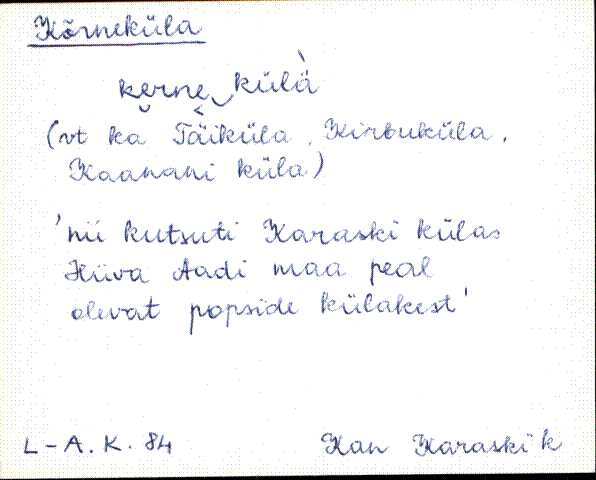 Kõrneküla
kerne külä
(vt ka Täiküla, Kirbuküla,
Kaanani küla)
'nii kutsuti Karaski külas
Hiiva Aadi maa peal
olevat popside külakest'
L-A. K. 84
Kan Karaski k